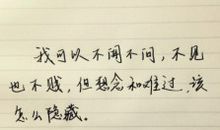 我可以不闻不问，不见
也不贱，但想念和难过，该
怎么隐藏。